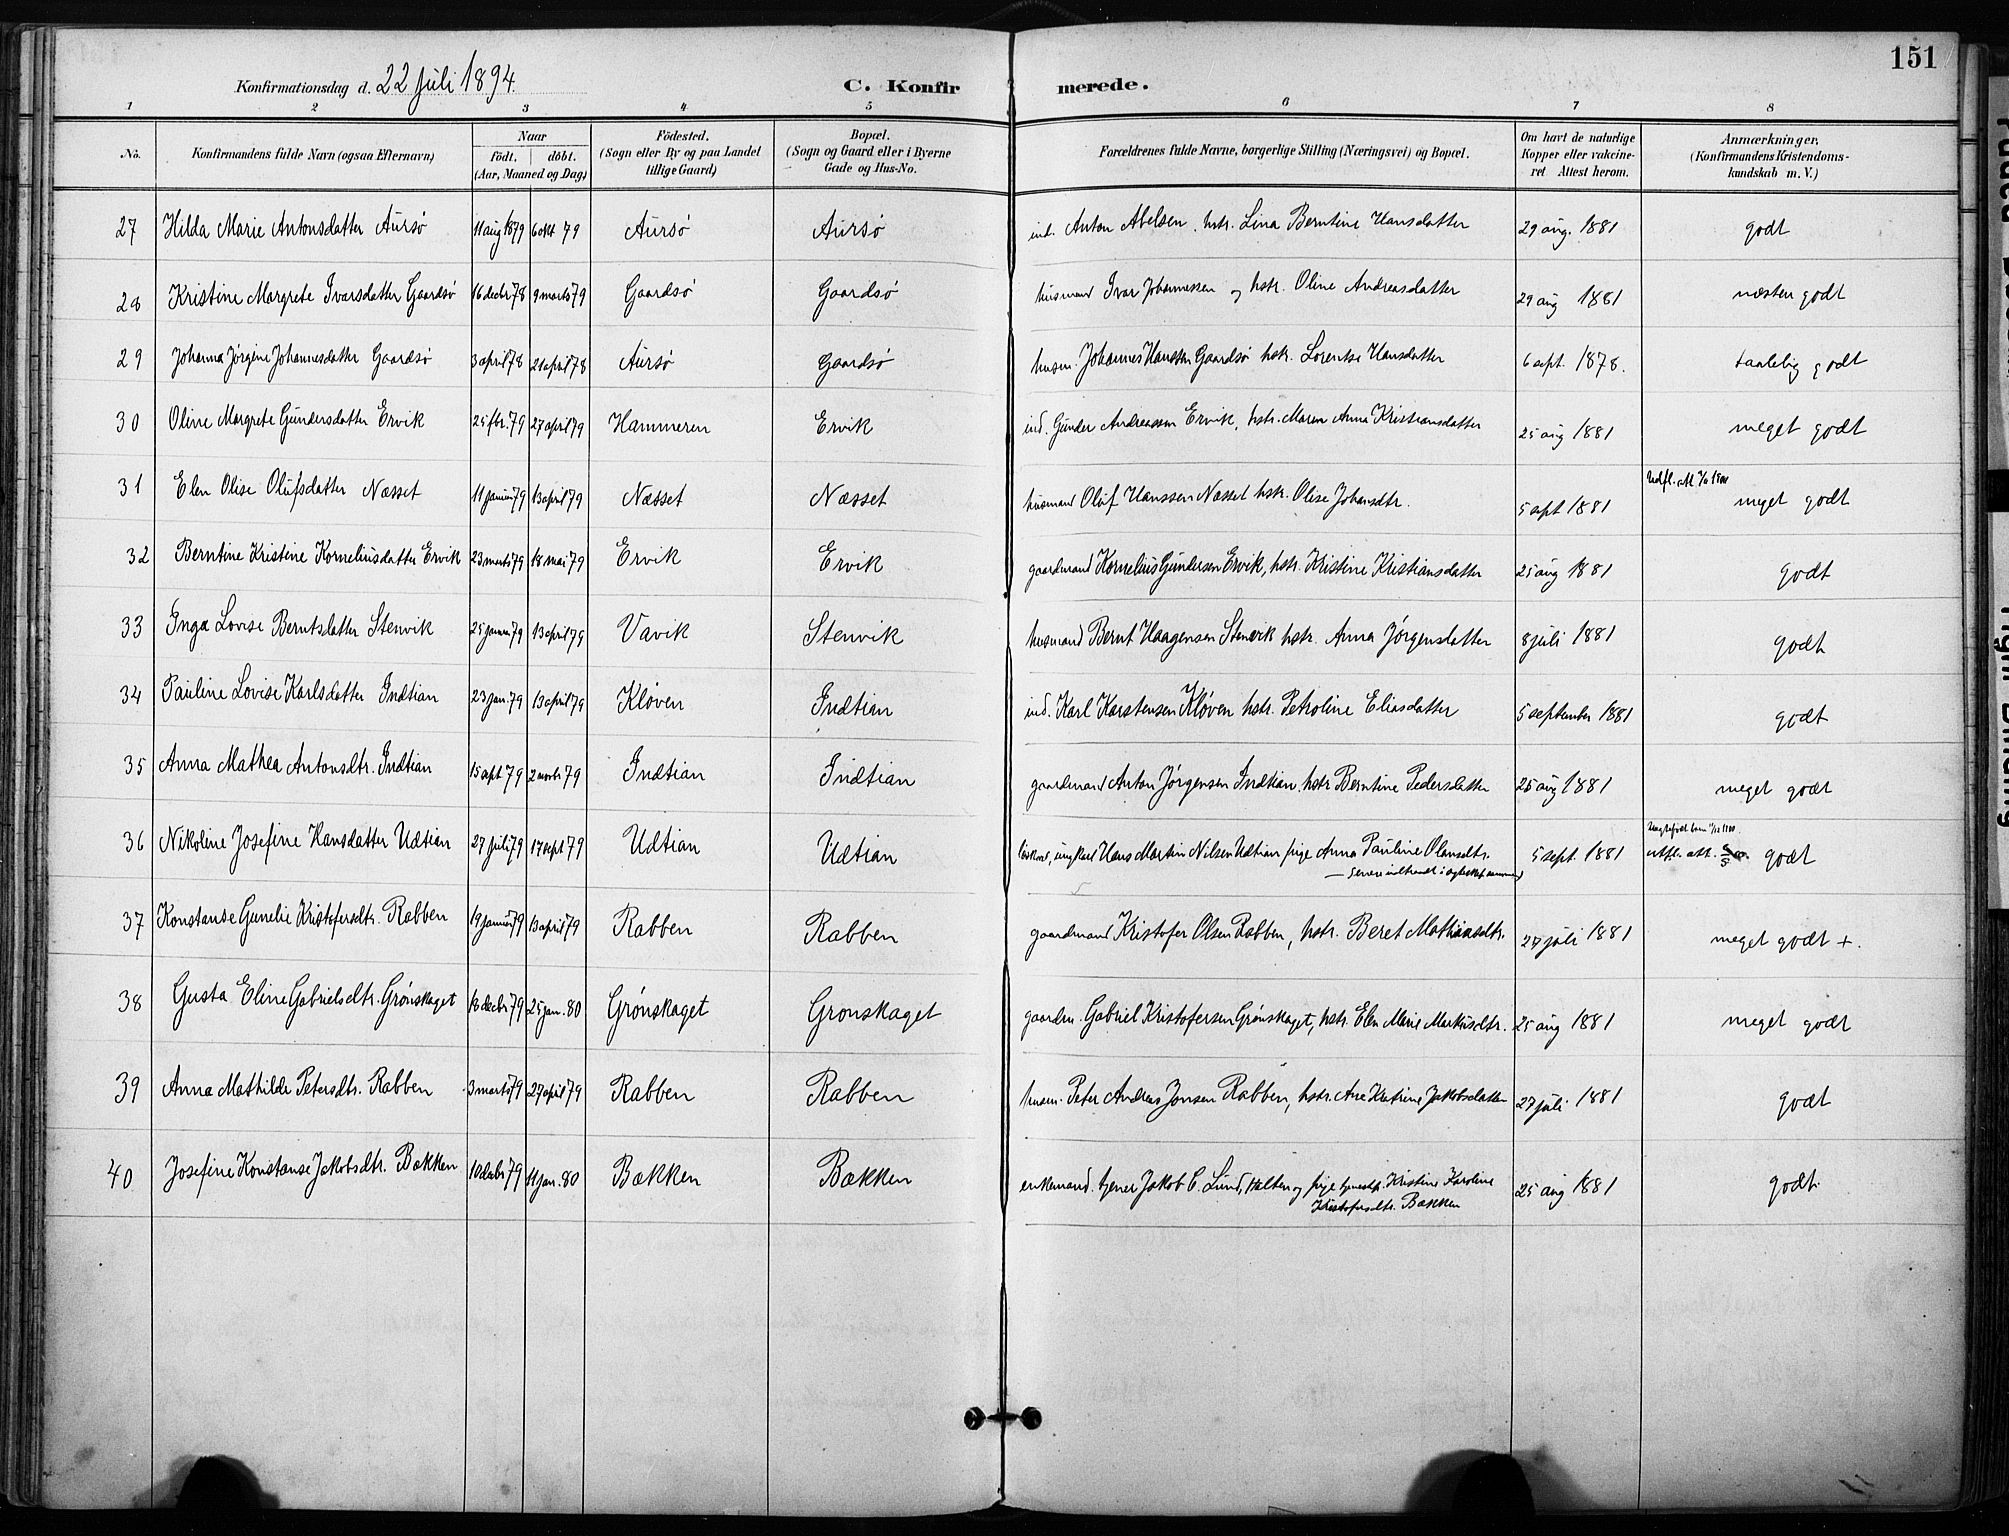 151
Konfirmationsdag d. 22 Juli 1894.
C. Konfirmerede.
1 2 3 4 5 6 7 8
No. Konfirmandens fulde Navn (ogsaa Efternavn) Naar födt. döbt. (Aar, Maaned og Dag) Födested. (Sogn eller By og paa Landet tillige Gaard) Bopæl. (Sogn og Gaard eller i Byerne Gade og Hus-No. Forældrenes fulde Navne, borgerlige Stilling (Næringsvei) og Bopæl. Om havt de naturlige Kopper eller vakcineret Attest herom. Anmærkninger. (Konfirmandens Kristendomskundskab m. V.)
27 Hilda Marie Antonsdatter Aursö 11 aug 1879 6 okt 79 Aursö Aursö ind. Anton Abelsen, hstr. Lina Berntine Hansdatter 29 aug. 1881 godt
28 Kristine Margrete Ivarsdatter Gaardsö 16 decbr 78 9 marts 79 Gaardsö Gaardsö husmand Ivar Johannessen og hstr. Oline Andreasdatter 29 aug 1881 næsten godt
29 Johanna Jörgine Johannesdatter Gaardsö 3 april 78 21 april 78 Aursö Gaardsö husm. Johannes Hanssen Gaardsö hstr. Lorentse Hansdatter 6 sept. 1878. taalelig godt
30 Oline Margrete Gundersdatter Ervik 25 fbr. 79 27 april 79 Hammeren Ervik ind. Gunder Andreassen Ervik, hstr. Maren Anna Kristiansdatter 25 aug 1881 meget godt
31 Elen Olise Olufsdatter Næsset 11 januar 79 13 april 79 Næsset Næsset husmand Oluf Hanssen Næsset hstr. Olise Johansdtr. 5 sept 1881 meget godt
32 Berntine Kristine Korneliusdatter Ervik 23 marts 79 18 mai 79 Ervik Ervik gaardmand Kornelius Gundersen Ervik, hstr. Kristine Kristiansdatter 25 aug 1881 godt
33 Inga Lovise Berntsdatter Stenvik 25 januar 79 13 april 79 Vavik Stenvik husmand Bernt Haagensen Stenvik hstr. Anna Jörgensdatter 8 juli 1881 godt
34 Pauline Lovise Karlsdatter Indtian 23 jan. 79 13 april 79 Klöven Indtian ind. Karl Karstensen Klöven hstr. Petroline Eliasdatter 5 september 1881 godt
35 Anna Mathea Antonsdtr. Indtian 15 sept 79 2 novbr 79 Indtian Indtian gaardmand Anton Jörgensen Indtian, hstr Berntine Pedersdatter 25 aug 1881 meget godt
36 Nikoline Josefine Hansdatter Udtian 27 juli 79 17 sept 79 Udtian Udtian ungkarl Hans Martin Nilsen Udtian pige Anna Pauline Olausdtr. 5 sept. 1881 utfl. att. godt
37 Konstanse Gunelie Kristofersdtr. Rabben 19 januar 79 13 april 79 Rabben Rabben gaardmand Kristofer Olsen Rabben, hstr. Beret Mathiasdtr. 27 juli 1881 meget godt +.
38 Gusta Eline Gabrielsdtr. Grönskaget 18 decbr 79 25 jan. 80 Grönskaget Grönskaget gaardm. Gabriel Kristofersen Grönskaget, hstr. Elen Marie Markusdtr. 25 aug 1881 meget godt
39 Anna Mathilde Petersdtr. Rabben 3 marts 79 27 april 79 Rabben Rabben husm. Peter Andreas Jonsen Rabben, hstr. Ane Katrine Jakobsdatter 27 juli 1881 godt
40 Josefine Konstanse Jakobsdtr. Bækken 10 decbr 79 11 jan. 80 Bækken Bækken enkemand tjener Jakob C. Lund, Halten og pige Kristine Karoline 25 aug 1881 godt
Kristofersdtr. Bækken